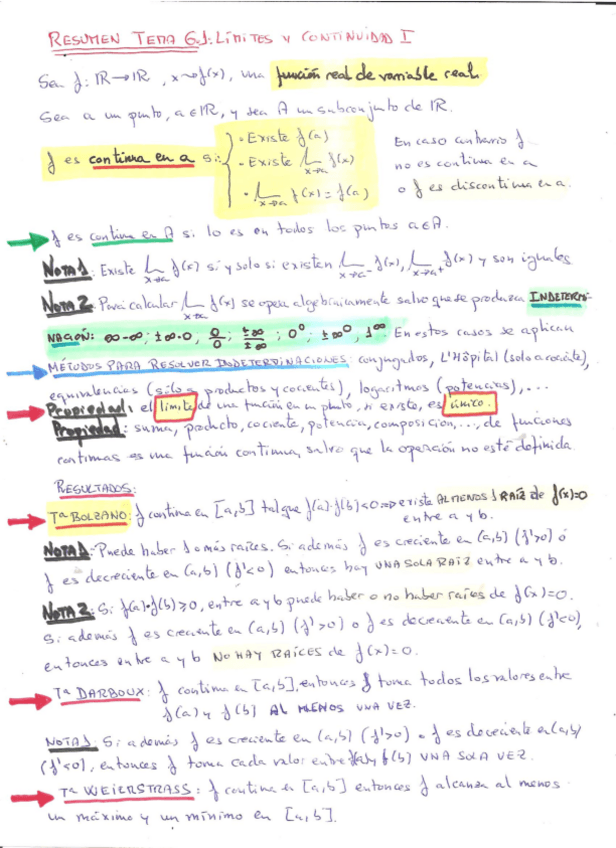 RESUMEN TEMA 6.1: LÍMITES Y CONTINUIDAD I
Sea f: ℝ→ℝ, x⇝f(x), una función real de variable real.
Sea a un punto, a∈ℝ, y sea A un subconjunto de ℝ.
f es continua en a si: { • Existe f(a)
• Existe Lim x→a f(x)
• Lim x→a f(x) = f(a)
En caso contrario f
no es continua en a
o f es discontinua en a.
f es continua en A si lo es en todos los puntos a∈A.
NOTA 1: Existe Lim x→a f(x) si y solo si existen Lim x→a⁻ f(x), Lim x→a⁺ f(x) y son iguales
NOTA 2: Para calcular Lim x→a f(x) se opera algebraicamente salvo que se produzca INDETERMI-
NACIÓN: ∞-∞; ±∞·0, 0/0; ±∞/±∞; 0⁰; ±∞⁰, 1^∞. En estos casos se aplican
MÉTODOS PARA RESOLVER INDETERMINACIONES: conjugados, L'Hôpital (solo a cociente),
equivalencias (sólo a productos y cocientes), logaritmos (potencias), ...
Propiedad 1: el límite de una función en un punto, si existe, es único.
Propiedad: suma, producto, cociente, potencia, composición..., de funciones
continuas es una función continua, salvo que la operación no esté definida.
RESULTADOS:
Tª BOLZANO: f continua en [a,b] tal que f(a)·f(b)<0 ⇒ existe AL MENOS 1 RAÍZ de f(x)=0
entre a y b.
NOTA 1: Puede haber 1 o más raíces. Si además f es creciente en (a,b) (f'>0) ó
f es decreciente en (a,b) (f'<0) entonces hay UNA SOLA RAÍZ entre a y b.
NOTA 2: Si f(a)·f(b)≥0, entre a y b puede haber o no haber raíces de f(x)=0.
Si además f es creciente en (a,b) (f'>0) o f es decreciente en (a,b) (f'<0),
entonces entre a y b NO HAY RAÍCES de f(x)=0.
Tª DARBOUX: f continua en [a,b], entonces f toma todos los valores entre
f(a) y f(b) AL MENOS UNA VEZ.
NOTA 1: Si además f es creciente en (a,b) (f'>0) o f es decreciente en (a,b)
(f'<0), entonces f toma cada valor entre f(a) y f(b) UNA SOLA VEZ.
Tª WEIERSTRASS: f continua en [a,b] entonces f alcanza al menos
un máximo y un mínimo en [a,b].